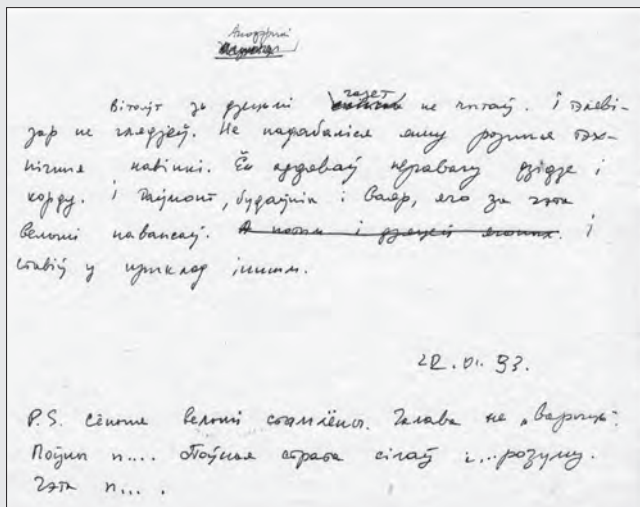 Вітольт за дзецьмі газет не чытаў. І тэлеві-
зар не глядзеў. Не падабаліся яму розныя тэх-
нічныя навінкі. Ён аддаваў перавагу дзідзе і
корду. І Гаўмонт, будаўнік і Ваяр, яго за гэта
вельмі паважаў. І
ставіў у прыклад іншым.
P.S. Сёння вельмі стамлёны. Галава не „варыць".
Поўны п.... Поўная страта сілаў і... розуму.
Гэта п... .